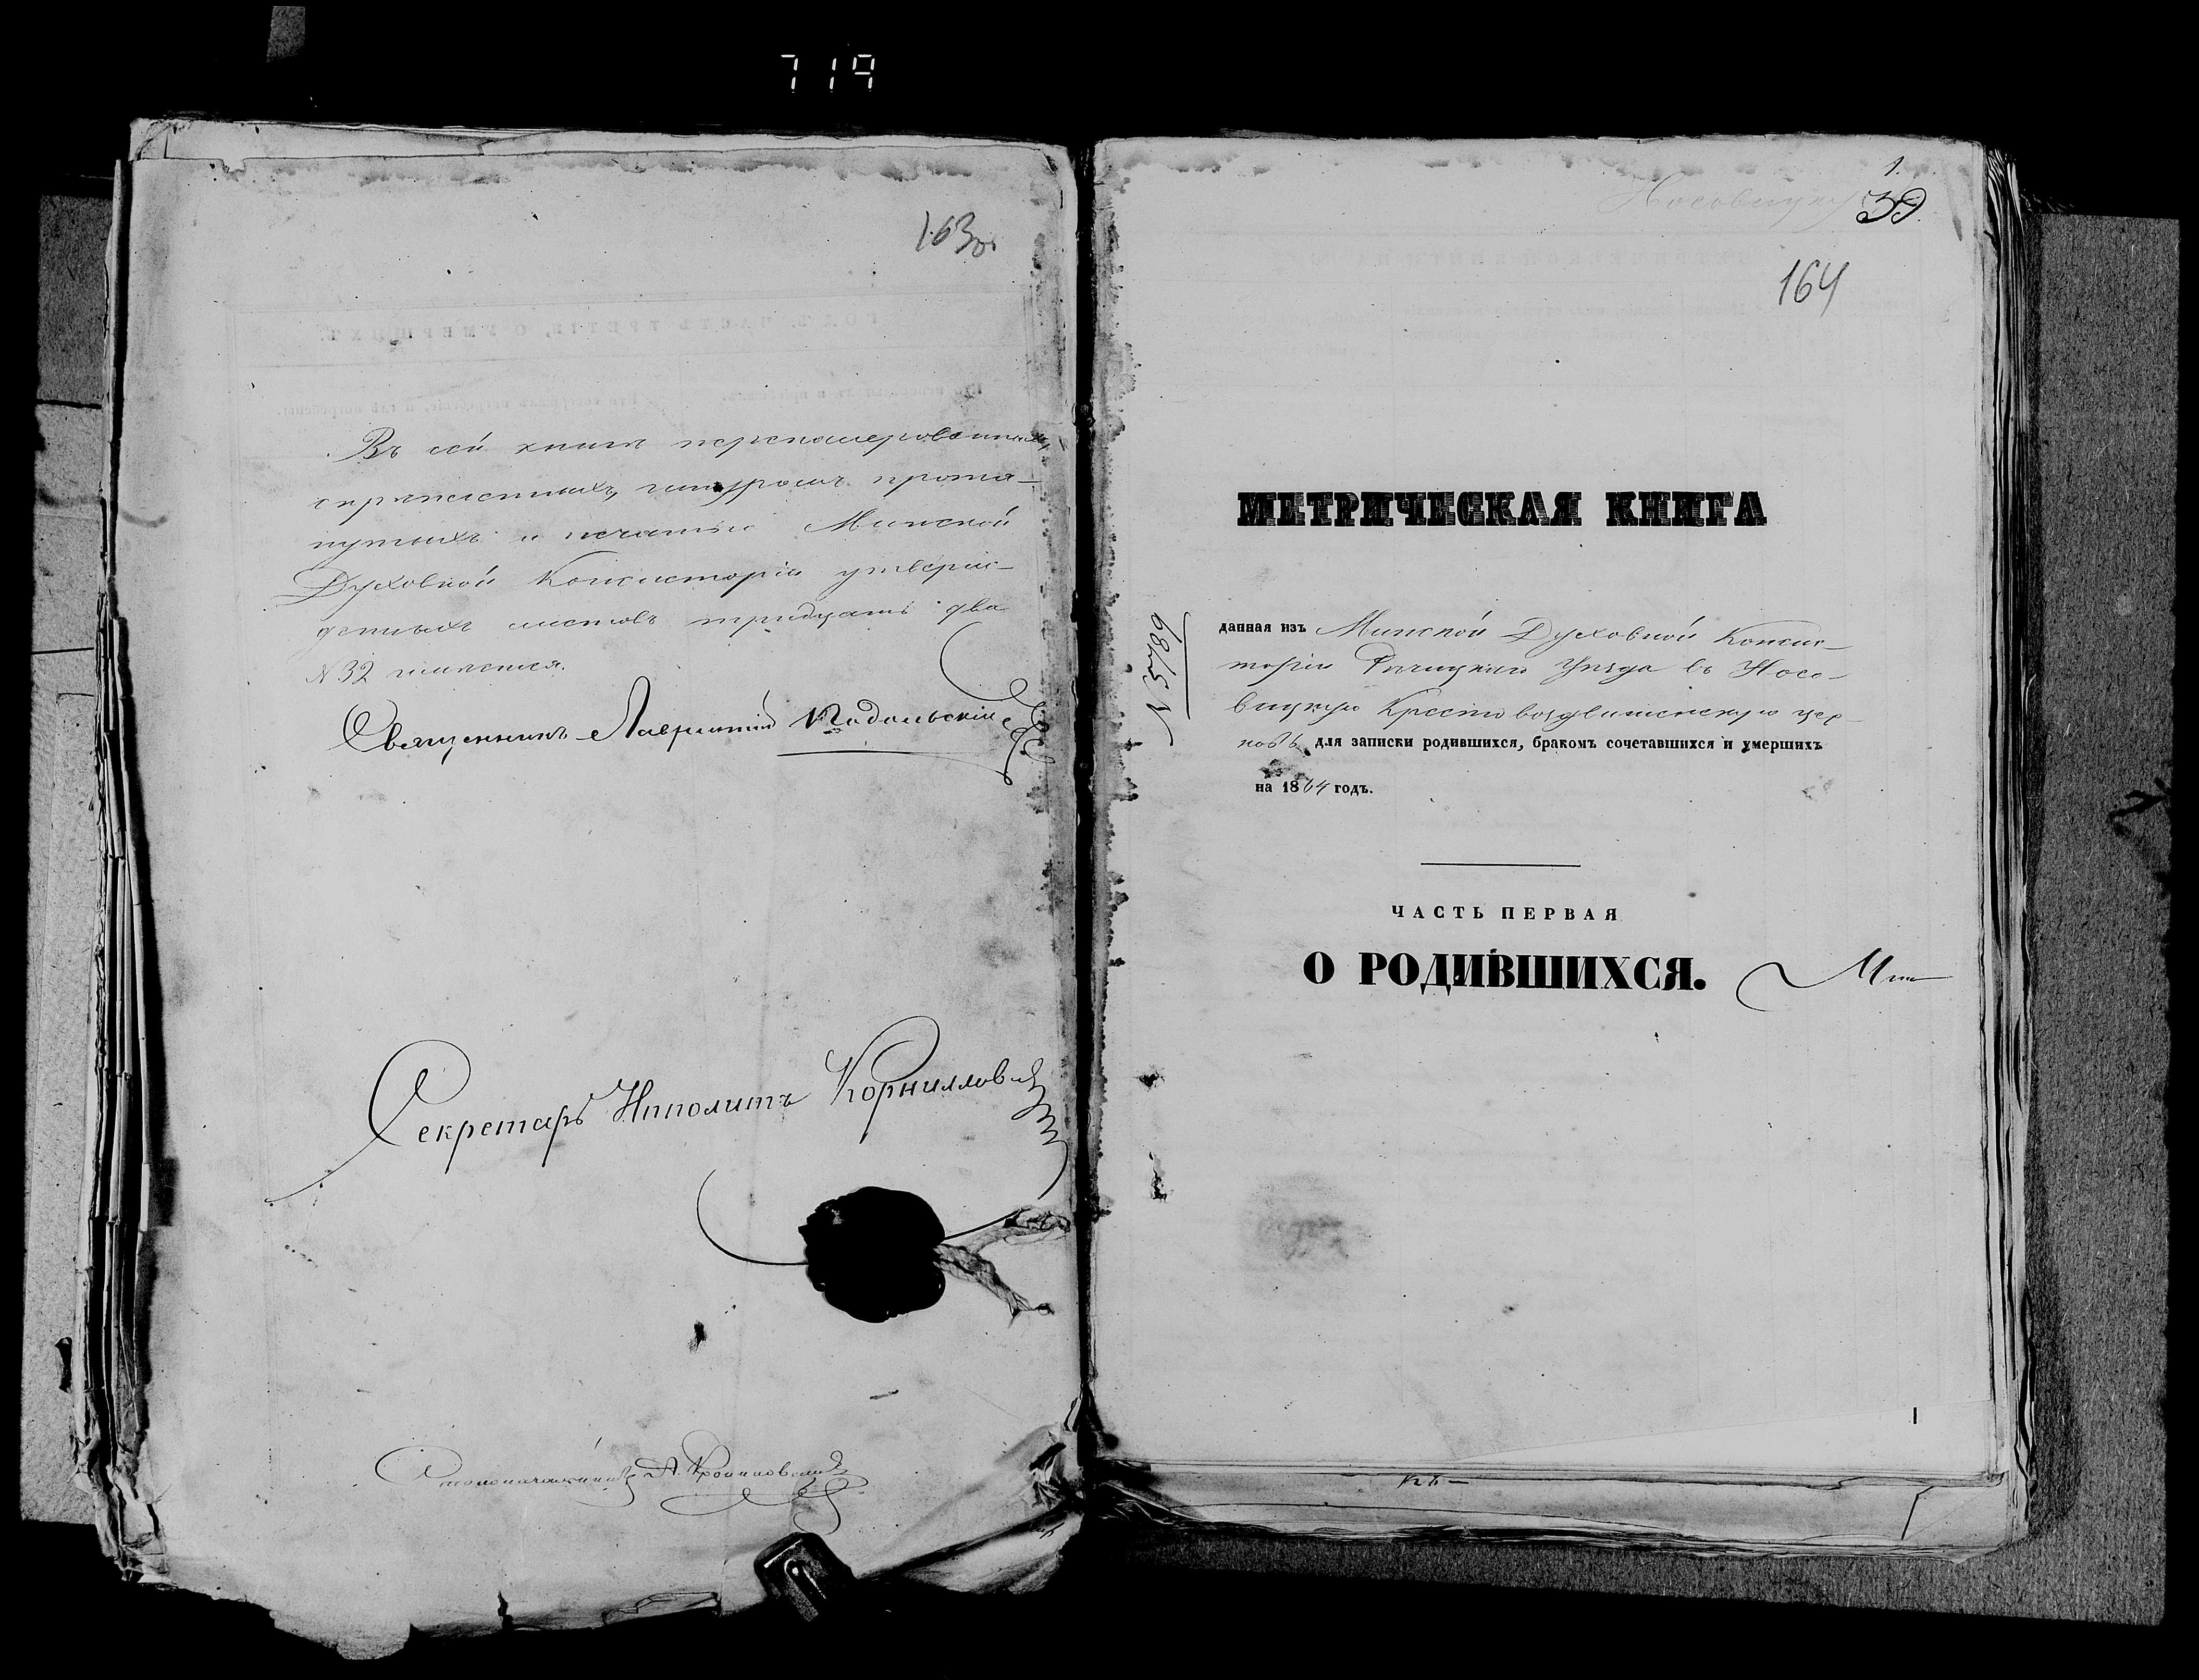 719
163об
Въ сей книгѣ перенумерованныхъ,
скрѣпленныхъ, шнуромъ протя-
нутыхъ и печатью Минской
Духовной Консисторіи утверж-
денныхъ листовъ тридцать два
№ 32 имѣется.
Священникъ Лаврентій Подольскій
Секретарь Ипполитъ Корниллов
Столоначальникъ А.
1.
Носовичи
39
164
МЕТРИЧЕСКАЯ КНИГА
данная изъ Минской Духовной Консис-
торіи Рѣчицкаго Уѣзда въ Носо-
вицкую Крестовоздвиженскую цер-
ковь для записки родившихся, бракомъ сочетавшихся и умершихъ
на 1864 годъ.
ЧАСТЬ ПЕРВАЯ
О РОДИВШИХСЯ.
Мин